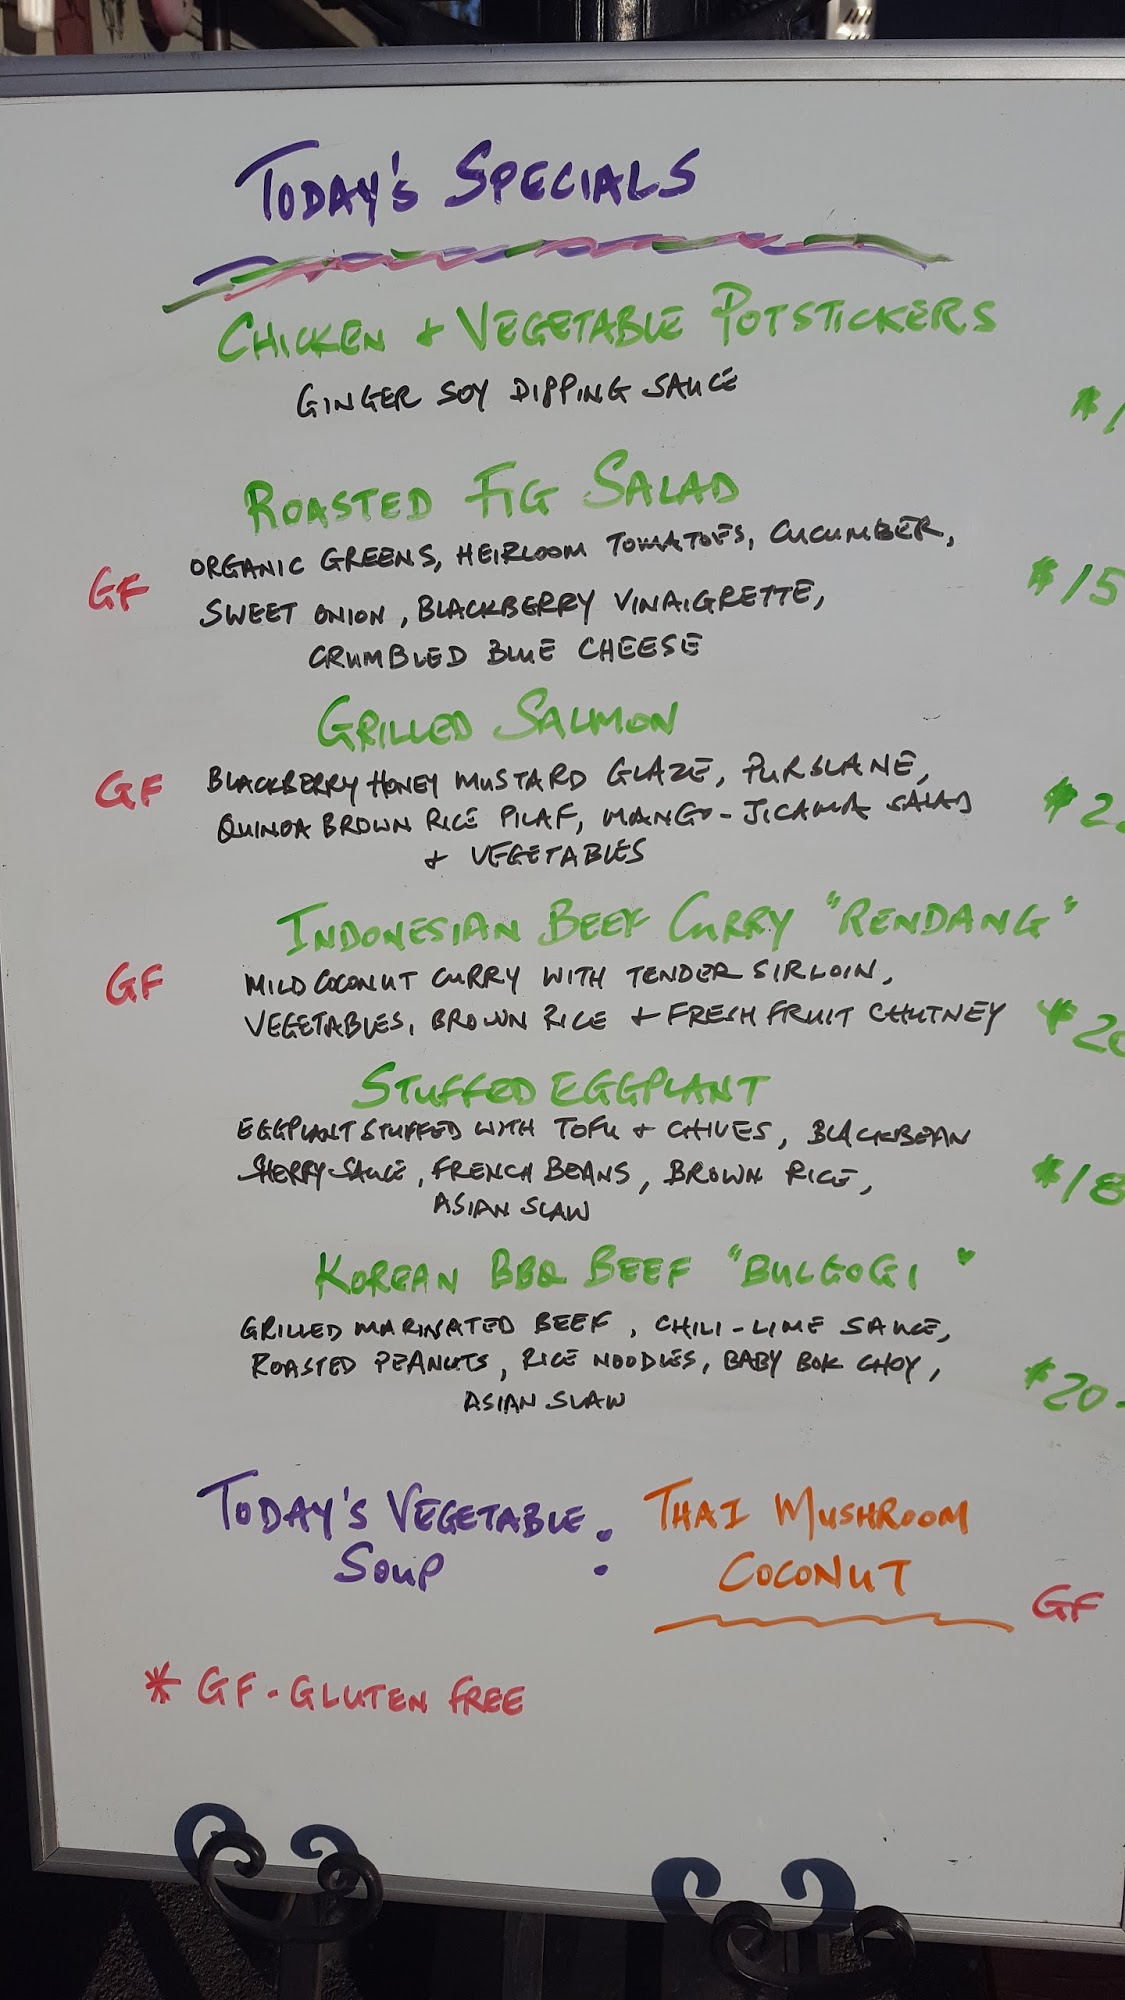 TODAY'S SPECIALS
CHICKEN + VEGETABLE POTSTICKERS
GINGER SOY DIPPING SAUCE
$1
ROASTED FIG SALAD
ORGANIC GREENS, HEIRLOOM TOMATOES, CUCUMBER,
GF SWEET ONION, BLACKBERRY VINAIGRETTE, $15
CRUMBLED BLUE CHEESE
GRILLED SALMON
GF BLACKBERRY HONEY MUSTARD GLAZE, PURSLANE,
QUINOA BROWN RICE PILAF, MANGO-JICAMA SALAD $2
+ VEGETABLES
INDONESIAN BEEF CURRY "RENDANG"
GF MILD COCONUT CURRY WITH TENDER SIRLOIN,
VEGETABLES, BROWN RICE + FRESH FRUIT CHUTNEY $20
STUFFED EGGPLANT
EGGPLANT STUFFED WITH TOFU + CHIVES, BLACKBEAN
SHERRY SAUCE, FRENCH BEANS, BROWN RICE, $18
ASIAN SLAW
KOREAN BBQ BEEF "BULGOGI"
GRILLED MARINATED BEEF, CHILI-LIME SAUCE,
ROASTED PEANUTS, RICE NOODLES, BABY BOK CHOY, $20-
ASIAN SLAW
TODAY'S VEGETABLE : THAI MUSHROOM
SOUP COCONUT
GF
* GF-GLUTEN FREE